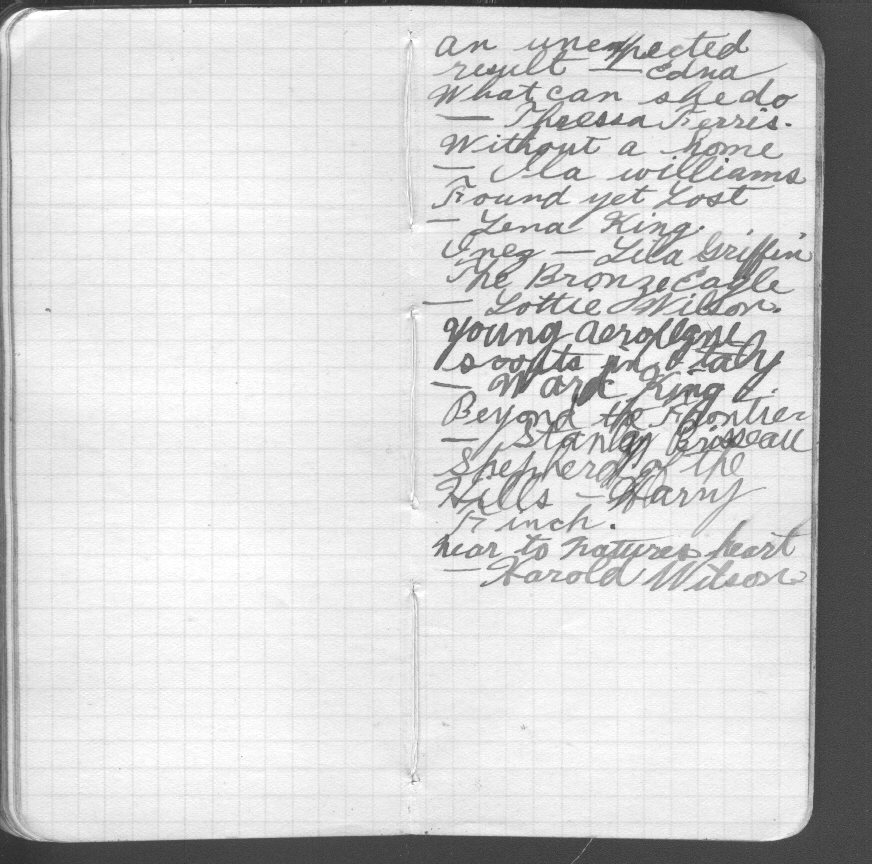 an unexpected
result — Edna
What can she do
— Thressa Ferris.
Without a home
— Ila williams
Found yet Lost
— Lena King.
Inez — Lila Griffin
The Bronze Eagle
— Lottie Wilson.
young aeroplane
scouts in Italy
— Mark King.
Beyond the Frontier
— Stanley Brosseau
Shepherd of the
Hills — Harry
Finch.
near to natures heart
— Harold Wilson